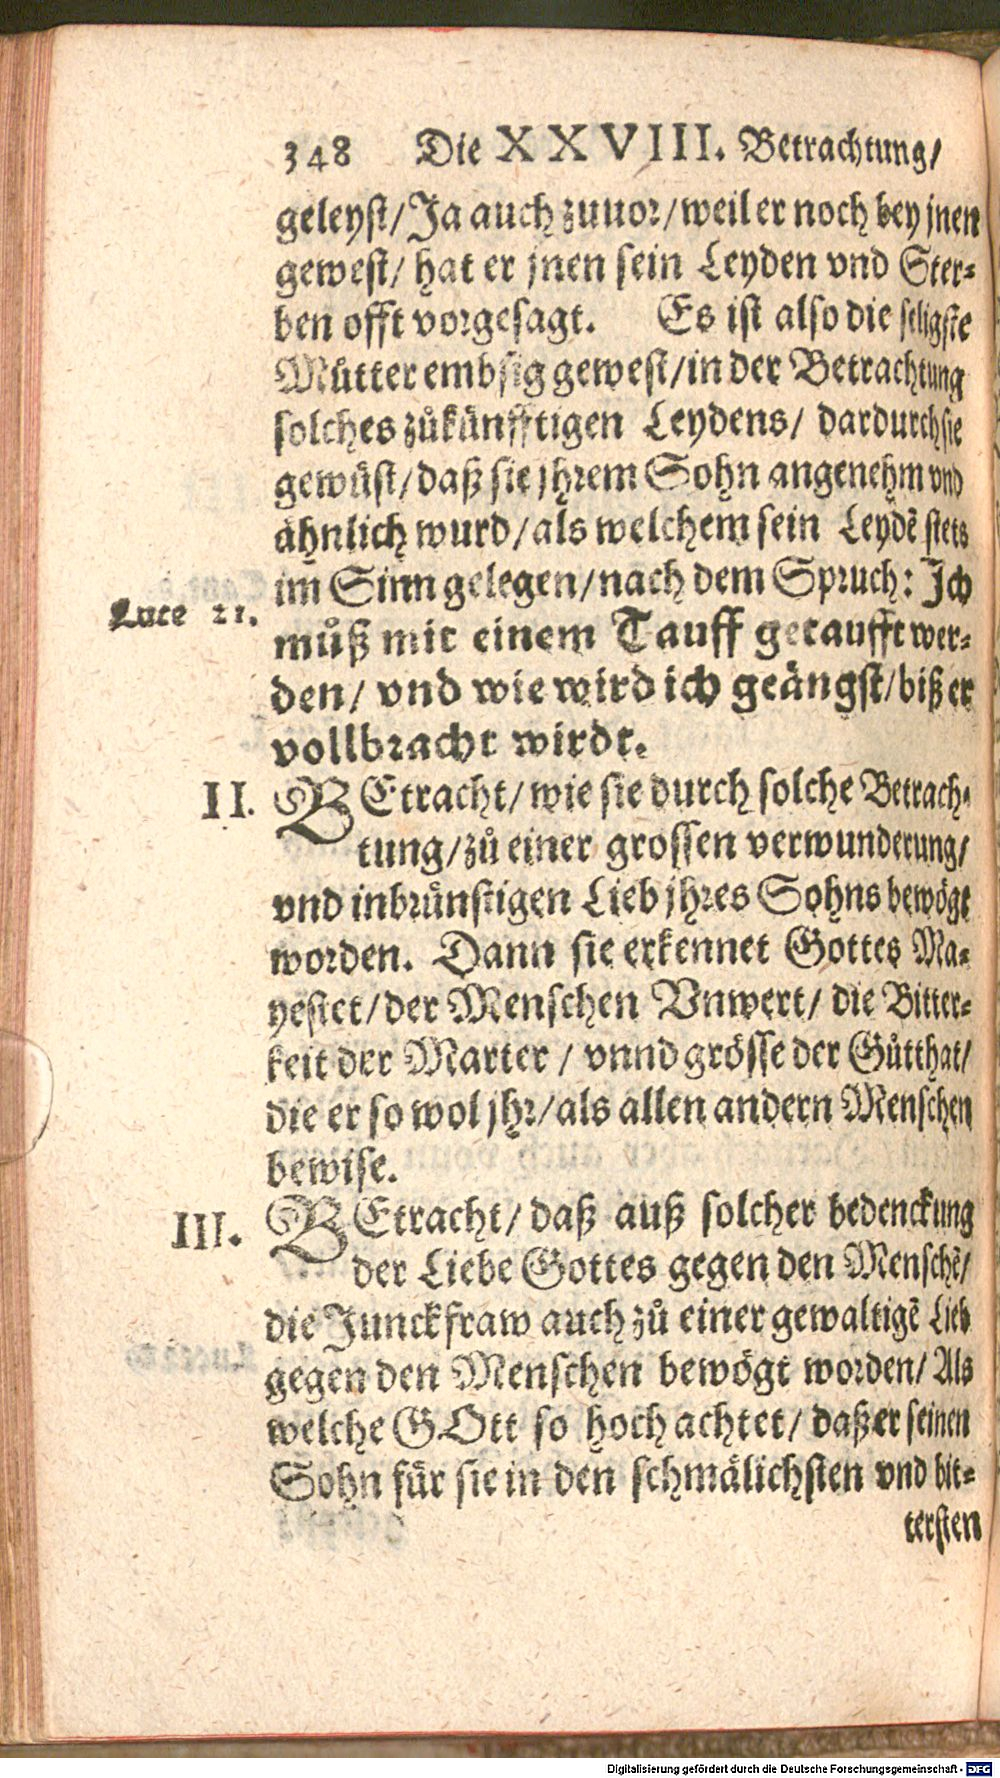 348 Die XXVIII. Betrachtung/
geleyst/Ja auch zuuor/weil er noch bey jnen
gewest/ hat er jnen sein Leyden vnd Ster⸗
ben offt vorgesagt. Es ist also die seligste
Můtter embsig gewest/in der Betrachtung
solches zůkünfftigen Leydens/ dardurch sie
gewüst/daß sie jhrem Sohn angenehm vnd
ähnlich wurd/als welchem sein Leydẽ stets
im Sinn gelegen/nach dem Spruch: Ich
Luce 21.
můß mit einem Tauff getaufft wer⸗
den/ vnd wie wird ich geängst/biß er
vollbracht wirdt.
II. BEtracht/ wie sie durch solche Betrach⸗
tung/zů einer grossen verwunderung/
vnd inbrünstigen Lieb jhres Sohns bewögt
worden. Dann sie erkennet Gottes Ma⸗
yestet/der Menschen Vnwert/ die Bitter⸗
keit der Marter / vnnd grösse der Gůtthat/
die er so wol jhr/als allen andern Menschen
bewise.
III. BEtracht/ daß auß solcher bedenckung
der Liebe Gottes gegen den Menschẽ/
die Junckfraw auch zů einer gewaltigẽ Lieb
gegen den Menschen bewögt worden/ Als
welche GOtt so hoch achtet/ daß er seinen
Sohn für sie in den schmälichsten vnd bit⸗
tersten
Digitalisierung gefördert durch die Deutsche Forschungsgemeinschaft - DFG